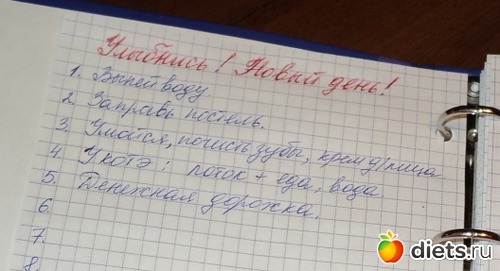 Улыбнись! Новый день!
1. Выпей воду.
2. Заправь постель.
3. Умойся, почисть зубы, крем д/лица
4 У котэ: лоток + еда, вода.
5. Денежная дорожка.
6.
7.
8.
diets.ru